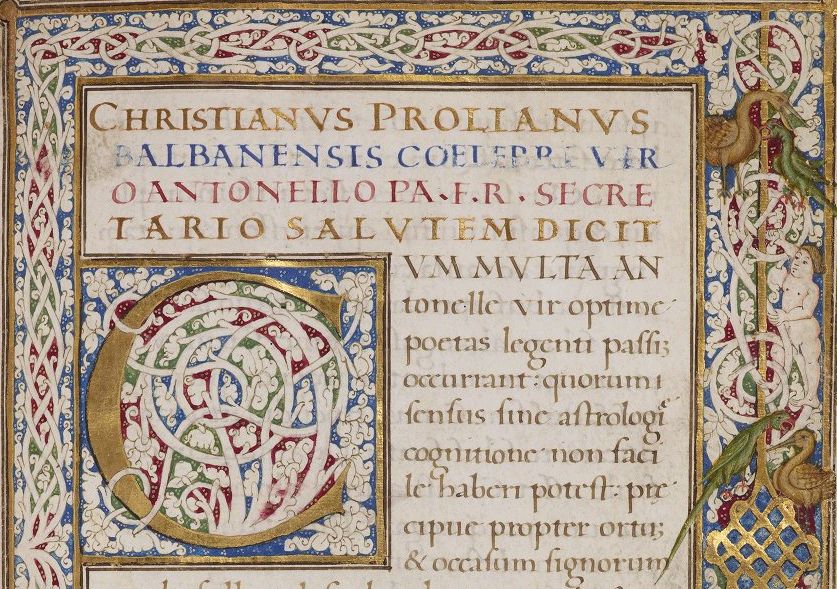 CHRISTIANVS PROLIANVS
BALBANENSIS COELEBRI VIR
O ANTONELLO PA·F·R· SECRE
TARIO SALVTEM DICIT
CVM MVLTA AN
tonelle vir optime
poetas legenti passiꝫ
occurrant: quorum
sensus sine astrologię
cognitione non faci
le haberi potest: pre
cipue propter ortuꝫ
& occasum signorum